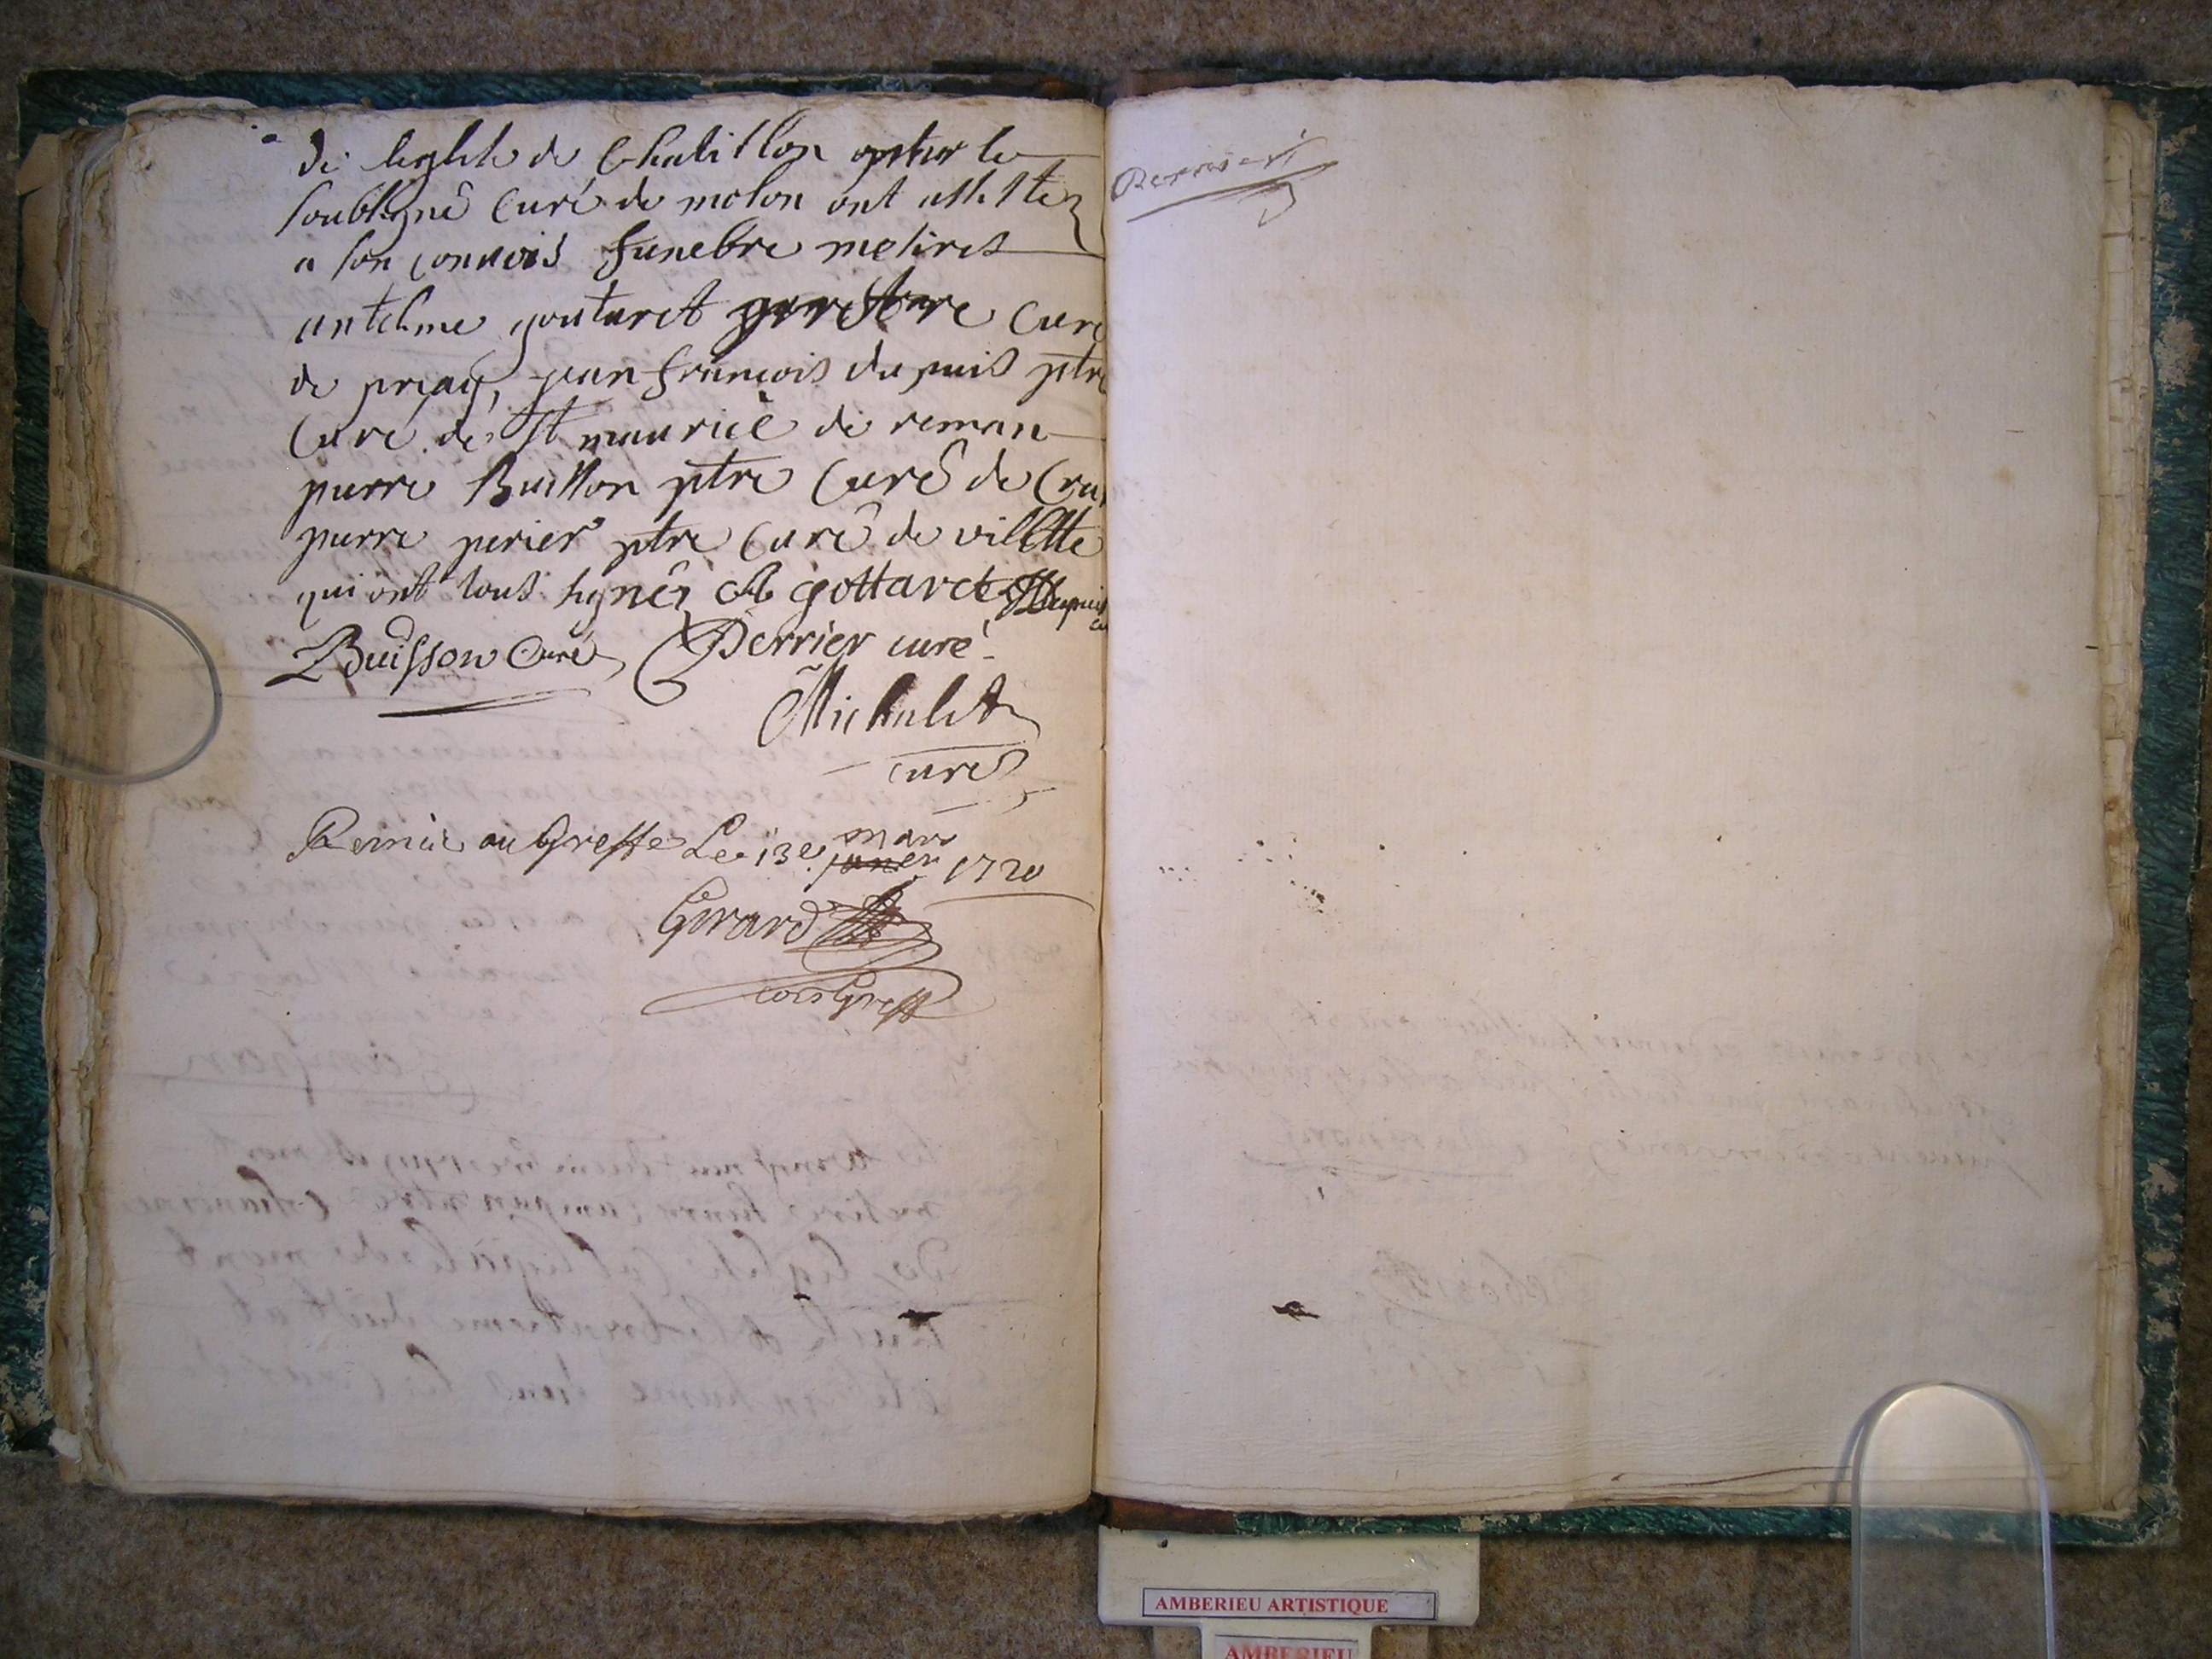 de leglise de Chatillon par le
soubsigné curé de molon ont assistez
a son convois funebre messires
antelme goutaret prestre curé
de priay, jean françois dupuis ptre
curé de St maurice de reman
pierre Buisson ptre curé de Cra
pierre perier ptre curé de villette
qui ont tous signéz A gottaret Dupuis
Buisson Curé Perrier curé
Michalet
curé
Remise au Greffe Le 13e mars
janer 1720
Girard
com Greff
AMBERIEU ARTISTIQUE
AMBERIEU